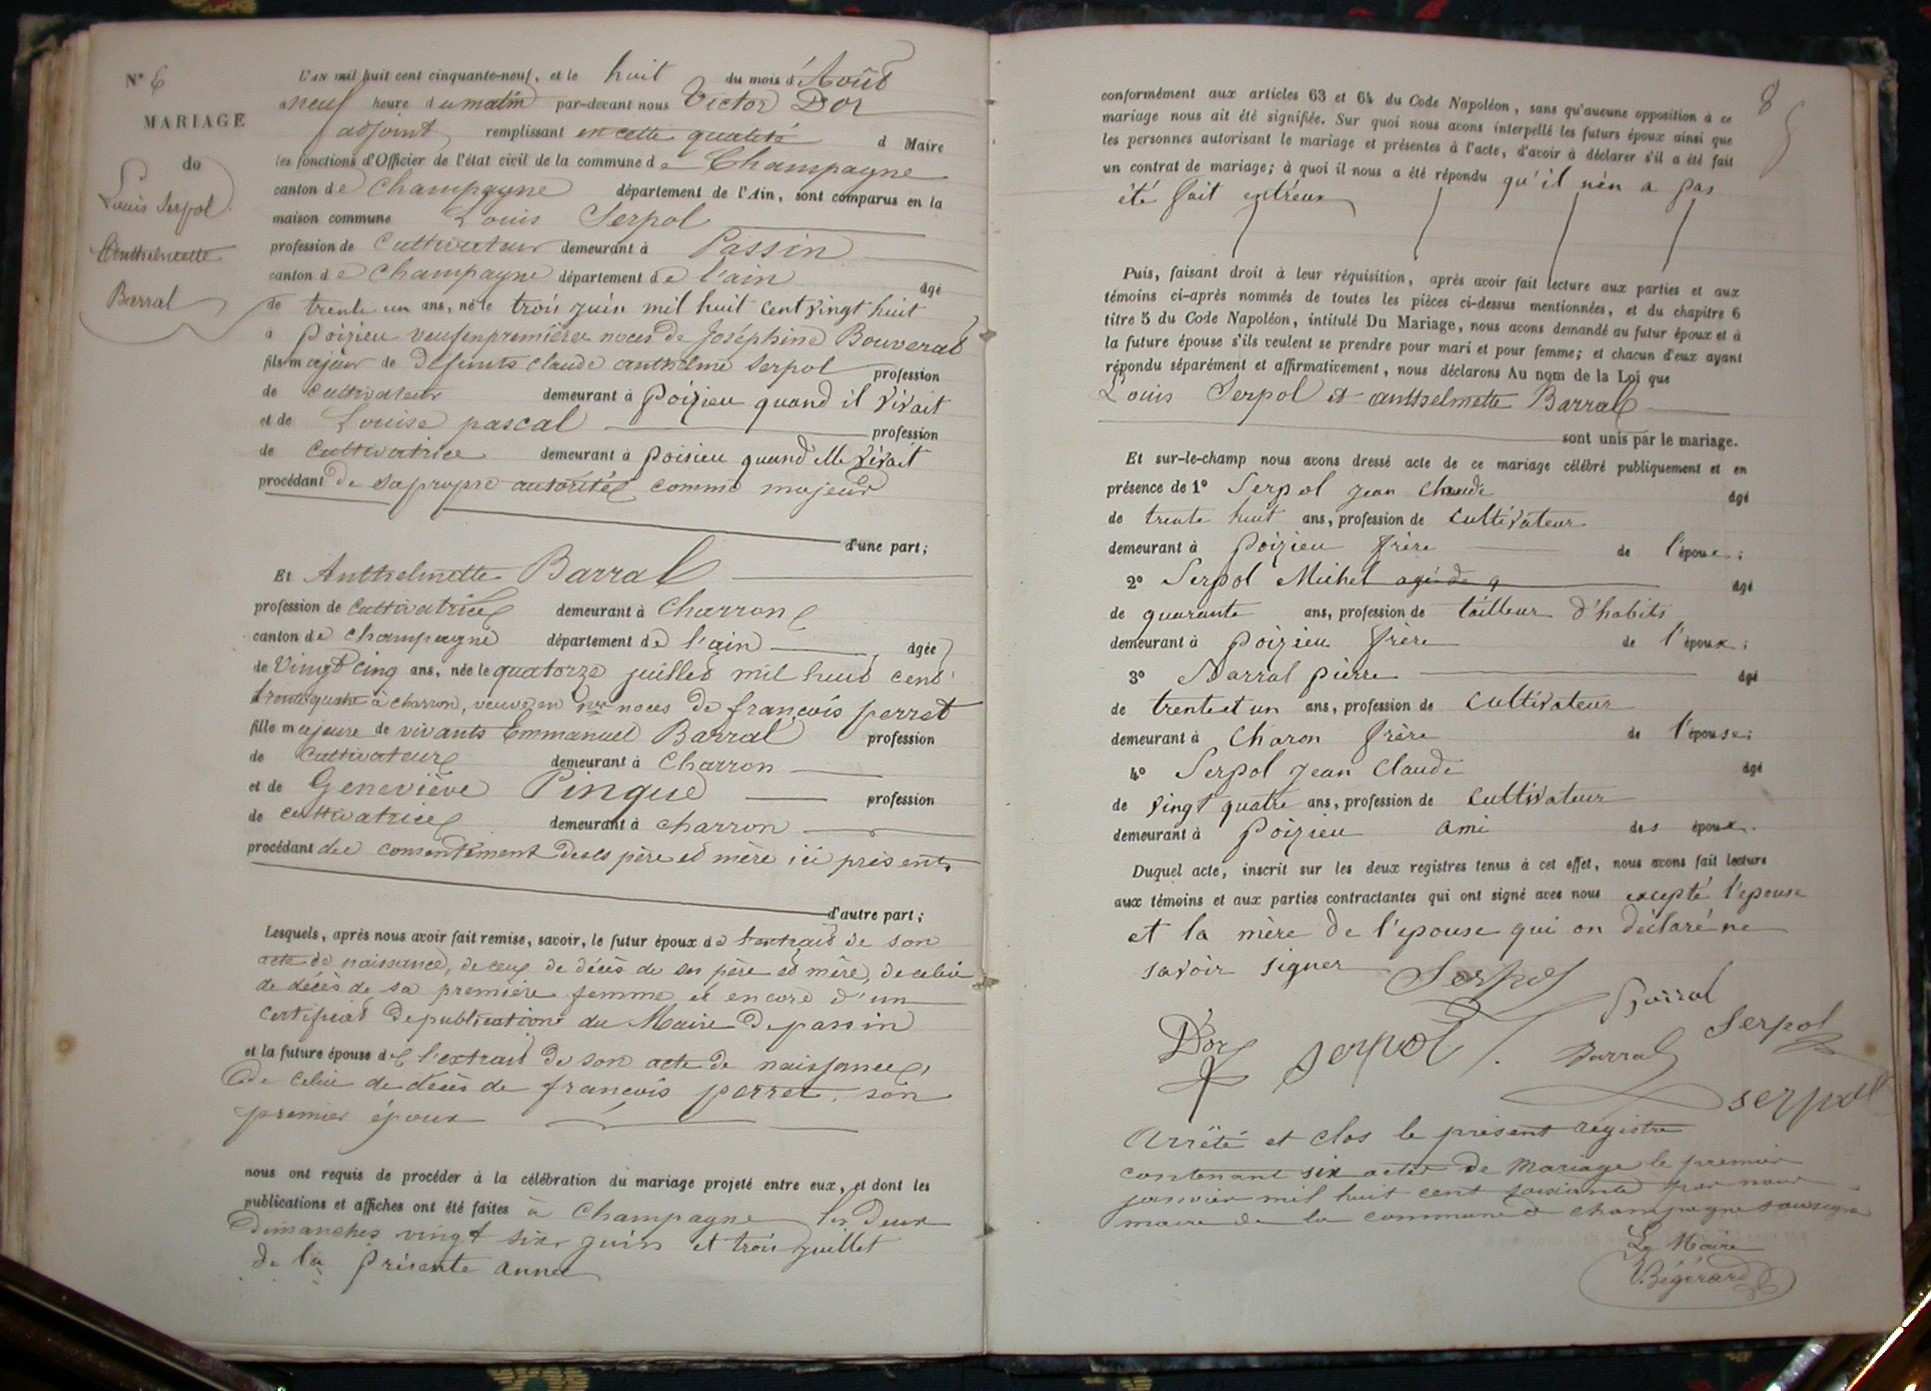 N° 6
MARIAGE
de
Louis Serpol
Anthelmette
Barral
L'AN mil huit cent cinquante-neuf, et le huit du mois d'Août
à neuf heure du matin par-devant nous Victor D'or
adjoint remplissant en cette qualité d Maire
les fonctions d'Officier de l'état civil de la commune de Champagne
canton de Champagne département de l'Ain, sont comparus en la
maison commune Louis Serpol
profession de Cultivateur demeurant à Passin
canton de Champagne département de l'ain âgé
de trente un ans, né le trois juin mil huit cent vingt huit
à Poizieu veuf en première noces de Joséphine Bouverat
fils majeur de Defunts claude anthelme Serpol profession
de Cultivateur demeurant à Poizieu quand il vivait
et de Louise pascal profession
de Cultivatrice demeurant à poisieu quand elle vivait
procédant de sa propre autorité comme majeur
d'une part;
Et Anthelmette Barral
profession de Cultivatrice demeurant à Charron
canton de Champagne département de l'ain, âgée
de Vingt cinq ans, née le quatorze juillet mil huit cent
trente quatre à charron, veuve en 1ères noces de françois perret
fille majeure de vivants Emmanuel Barral profession
de Cultivateur demeurant à Charron
et de Geneviève Pingue profession
de Cultivatrice demeurant à charron
procédant du consentement de ses père et mère ici présents
d'autre part;
Lesquels, après nous avoir fait remise, savoir, le futur époux de l'extrait de son
acte de naissance, de ceux de décès de ses père et mère, de celui
de décès de sa première femme et encore d'un
certificat de publications du Maire de passin
et la future épouse de l'extrait de son acte de naissance,
de celui de décès de françois perret, son
premier époux
nous ont requis de procéder à la célébration du mariage projeté entre eux, et dont les
publications et affiches ont été faites à Champagne les Deux
Dimanches vingt six juin et trois juillet
de la présente année
8
conformément aux articles 63 et 64 du Code Napoléon, sans qu'aucune opposition à ce
mariage nous ait été signifiée. Sur quoi nous avons interpellé les futurs époux ainsi que
les personnes autorisant le mariage et présentes à l'acte, d'avoir à déclarer s'il a été fait
un contrat de mariage; à quoi il nous a été répondu qu'il n'en a pas
été fait entr'eux
Puis, faisant droit à leur réquisition, après avoir fait lecture aux parties et aux
témoins ci-après nommés de toutes les pièces ci-dessus mentionnées, et du chapitre 6
titre 5 du Code Napoléon, intitulé Du Mariage, nous avons demandé au futur époux et à
la future épouse s'ils veulent se prendre pour mari et pour femme; et chacun d'eux ayant
répondu séparément et affirmativement, nous déclarons Au nom de la Loi que
Louis Serpol et anthelmette Barral
sont unis par le mariage.
Et sur-le-champ nous avons dressé acte de ce mariage célébré publiquement et en
présence de 1° Serpol Jean Claude âgé
de trente huit ans, profession de Cultivateur
demeurant à Poizieu frère de l'époux;
2° Serpol Michel agé de q âgé
de quarante ans, profession de tailleur d'habits
demeurant à Poizieu frère de l'époux;
3° Barral pierre âgé
de trente et un ans, profession de Cultivateur
demeurant à Charon frère de l'épouse;
4° Serpol Jean Claude âgé
de vingt quatre ans, profession de Cultivateur
demeurant à Poizieu ami des époux.
Duquel acte, inscrit sur les deux registres tenus à cet effet, nous avons fait lecture
aux témoins et aux parties contractantes qui ont signé avec nous excepté l'épouse
et la mère de l'épouse qui on déclaré ne
savoir signer
Serpol
Barral
D'or Serpol Barral Serpol
Serpol
Arrêté et clos le présent registre
contenant six actes de Mariage le premier
janvier mil huit cent soixante par nous
maire de la commune de champagne soussigné
Le Maire